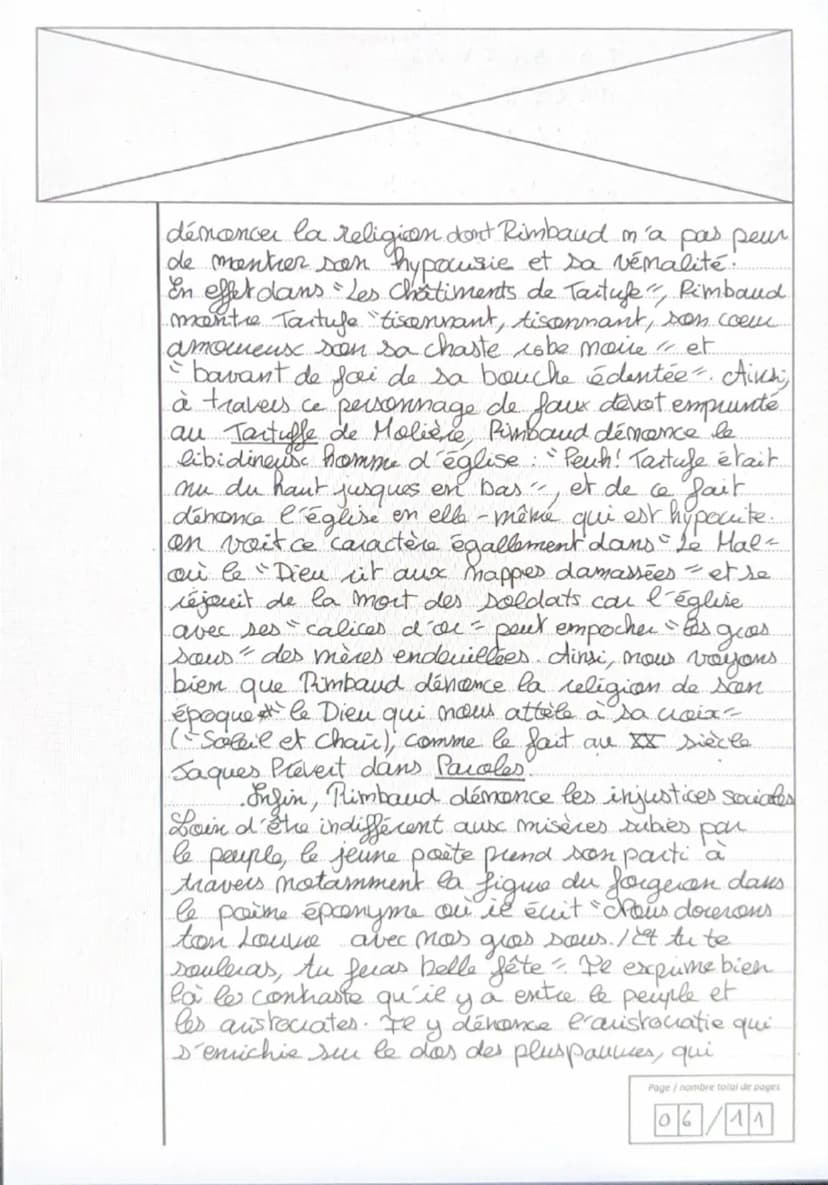 dénoncer la religion dont Rimbaud n'a pas peur
de montrer son hypocrisie et sa vénalité.
En effet dans "Les Châtiments de Tartufe", Rimbaud
montre Tartufe "tisonnant, tisonnant, son coeur
amoureux son sa chaste robe noire" et
"bavant de foi de sa bouche édentée". Ainsi,
à travers ce personnage de faux dévot emprunté
au Tartuffe de Molière, Rimbaud dénonce le
libidineux homme d'église : "Peuh! Tartufe était
nu du haut jusques en bas", et de ce fait
dénonce l'église en elle-même qui est hypocrite.
on voit ce caractère égallement dans "Le Mal"
où le "Dieu rit aux nappes damassées" et se
réjouit de la mort des soldats car l'église
avec ses "calices d'or" peut empocher "les gros
sous" des mères endeuillées. Ainsi, nous voyons
bien que Rimbaud dénonce la religion de son
époque "le Dieu qui nous attèle à sa croix"
("Soleil et Chair), comme le fait au XX siècle
Jaques Prévert dans Paroles.
Enfin, Rimbaud dénonce les injustices sociales
Loin d'être indifférent aux misères subies par
le peuple, le jeune poète prend son parti à
travers notamment la figure du forgeron dans
le poème éponyme où il écrit "Nous dorerons
ton Louvre avec nos gros sous. / Et tu te
souleras, tu feras belle fête". Il exprime bien
là le contraste qu'il y a entre le peuple et
les aristocrates. Il y dénonce l'aristocratie qui
s'enrichie sur le dos des plus pauvres, qui
Page / nombre total de pages
06/11